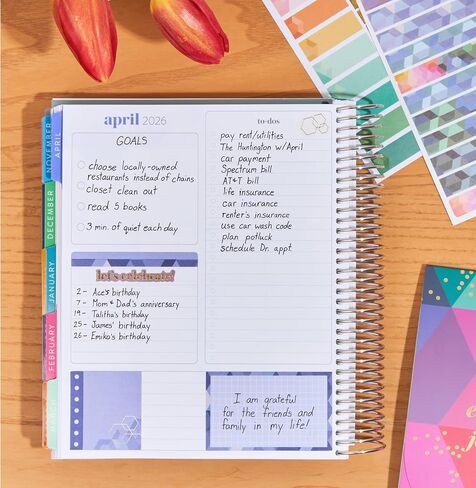 april 2026
GOALS
choose locally-owned
restaurants instead of chains
closet clean out
read 5 books
3 min. of quiet each day
let's celebrate!
2 - Ace's birthday
7 - Mom & Dad's anniversary
19 - Talitha's birthday
25 - James' birthday
26 - Emiko's birthday
to-dos
pay rent/utilities
The Huntington w/April
car payment
Spectrum bill
AT&T bill
life insurance
car insurance
renter's insurance
use car wash code
plan potluck
schedule Dr. appt.
I am grateful
for the friends and
family in my life!
NOVEMBER
APRIL
DECEMBER
JANUARY
FEBRUARY
MARCH